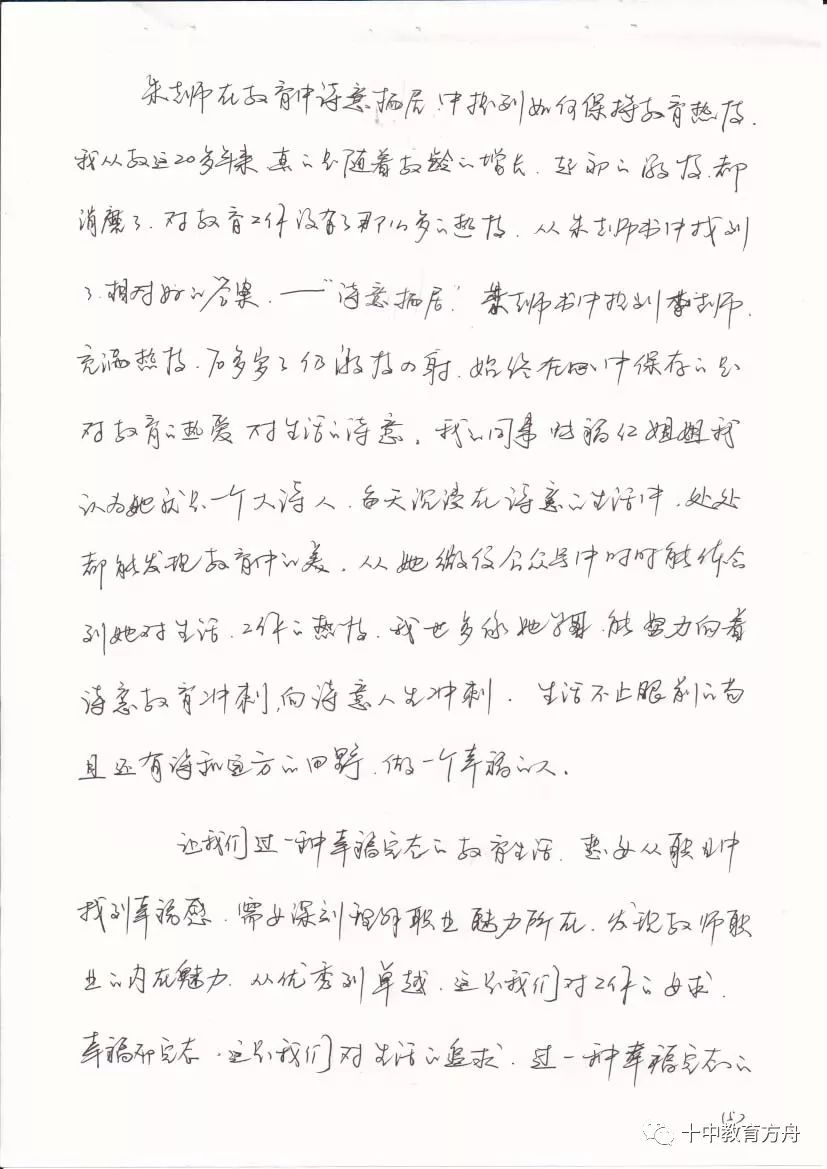 朱老师在教育中诗意栖居中提到如何保持教育热情.
我从教这20多年来 真的是随着教龄的增长. 起初的激情.都
消磨了. 对教育工作没有了那么多的热情. 从朱老师书中找到
了.相对好的答案. ——"诗意栖居." 朱老师书中提到李老师.
充满热情. 70多岁了仍激情四射. 始终在心中保存的是
对教育的热爱 对生活的诗意。我的同事 福红姐姐我
认为她就是一个大诗人. 每天沉浸在诗意的生活中. 处处
都能发现教育中的美. 从她微信公众号中时时能体会
到她对生活.工作的热情. 我也多像她学习.能努力向着
诗意教育冲刺,向诗意人生冲刺. 生活不止眼前的苟
且还有诗和远方的田野.做一个幸福的人.
让我们过一种幸福完态的教育生活. 想要从职业中
找到幸福感. 需要深刻理解职业魅力所在. 发现教师职
业的内在魅力. 从优秀到卓越. 这是我们对工作的要求.
幸福而完态.这是我们对生活的追求. 过一种幸福完态的
(5)
十中教育方舟